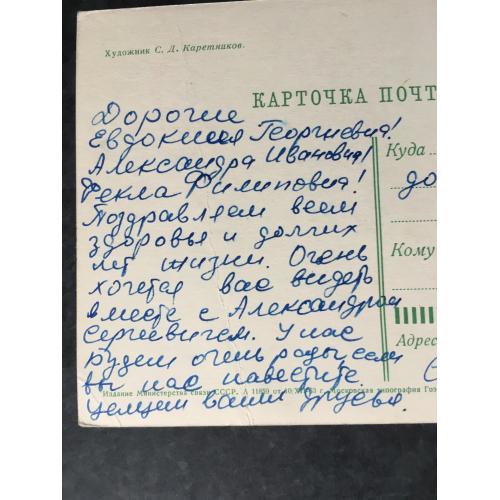 Художник С. Д. Каретников.
КАРТОЧКА ПОЧТ
Дорогие
Евдокшея Георгиевна!
Александра Ивановна!
Фекла Филиповна!
Поздравляем всем
здоровья и долгих
лет жизни. Очень
хочется вас видеть
вместе с Александром
Сергеевичем. У нас
будем очень рады если
вы нас навестите
целуем ваши друзья.
Куда
до
Кому
Адрес
Издание Министерства связи СССР. Л 11809 от 10/ 63 г. Московская типография Гоз